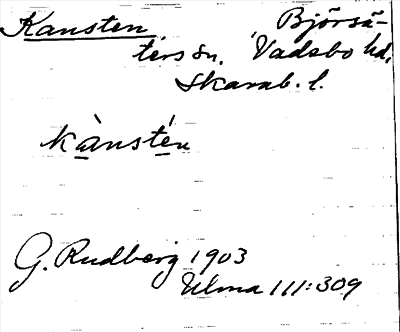 Kansten Björsä-
ters sn, Vadsbo hd,
Skarab. l.
kànstén
G. Rudberg 1903
Ulma 111:309